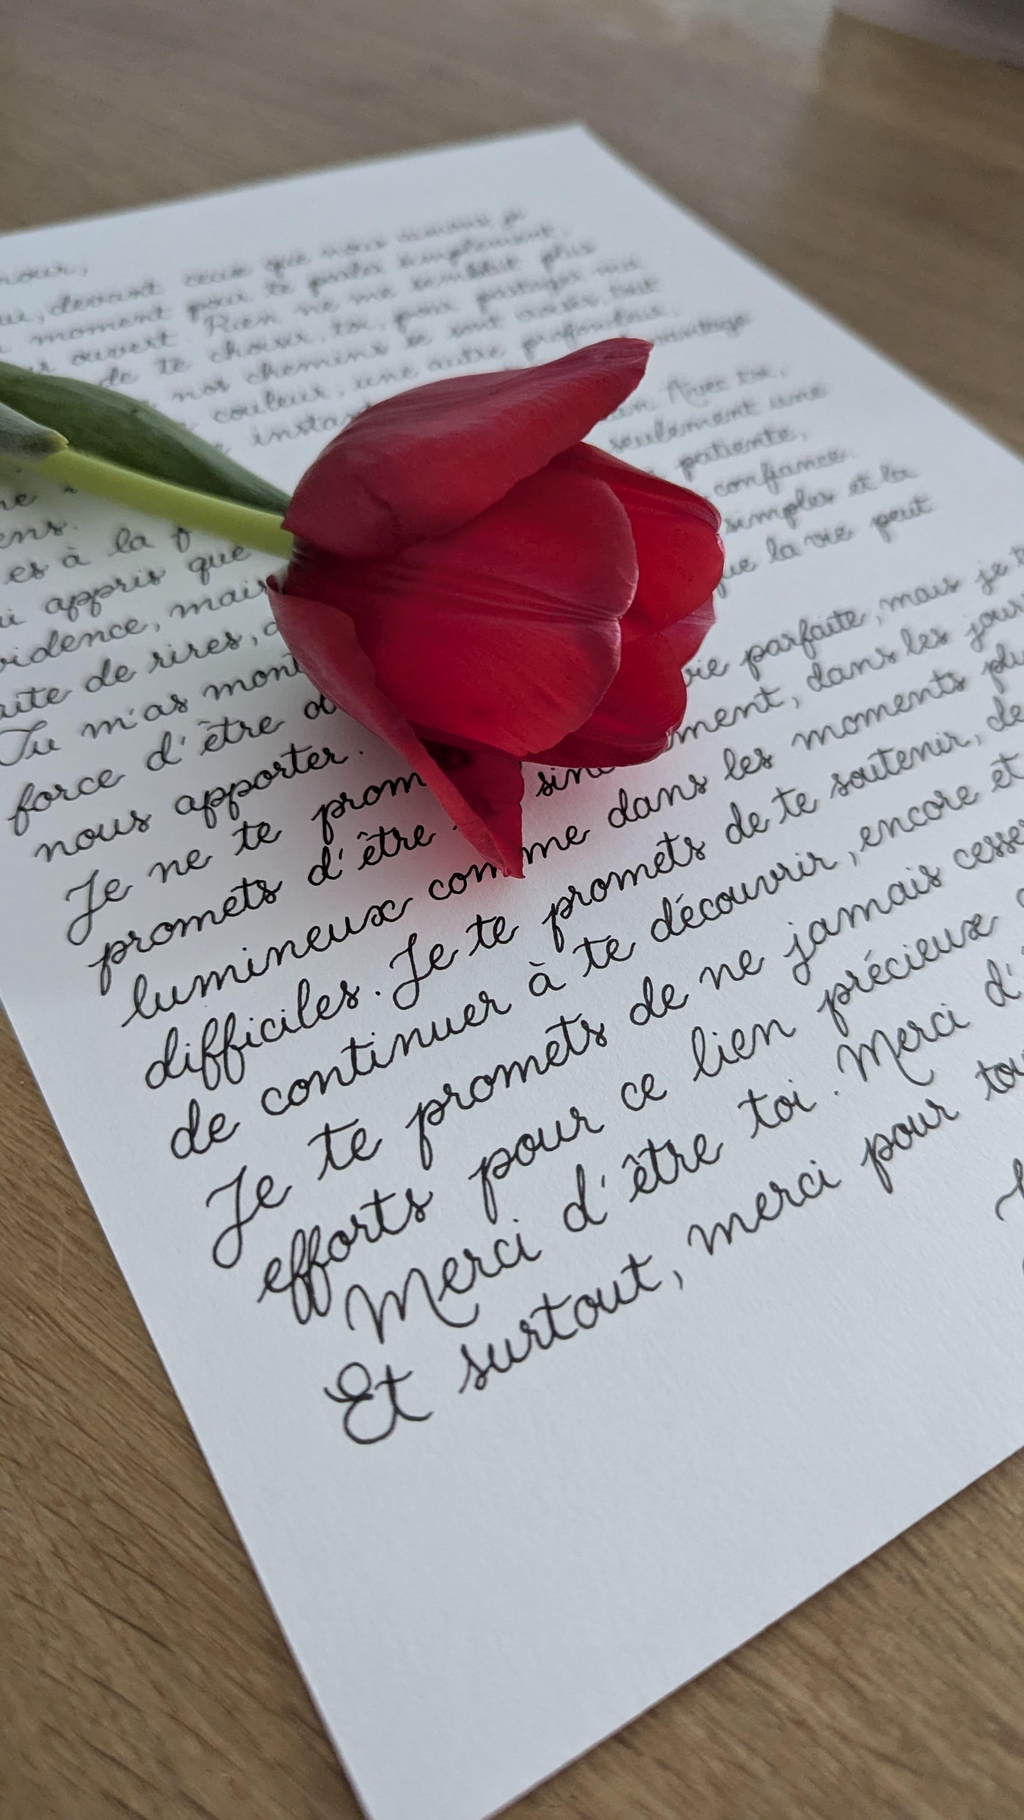 mour,
devant ceux que nous aimons, je
moment pour te parler simplement,
ouvert. Rien ne me semblait plus
de te choisir, toi, pour partager ma
nos chemins se sont croisés, tout
couleur, une autre profondeur,
instan
Avec toi,
seulement une
ens. patiente,
es à la confiance.
appris que simples et la
vidence, mais que la vie peut
aite de rires,
Tu m'as mont
force d'être
nous apporter.
Je ne te prom vie parfaite, mais je t
promets d'être sinc ment, dans les jour
lumineux comme dans les moments plu
difficiles. Je te promets de te soutenir, de
de continuer à te découvrir, encore et
Je te promets de ne jamais cesse
efforts pour ce lien précieux
Merci d'être toi. Merci d'
Et surtout, merci pour tou